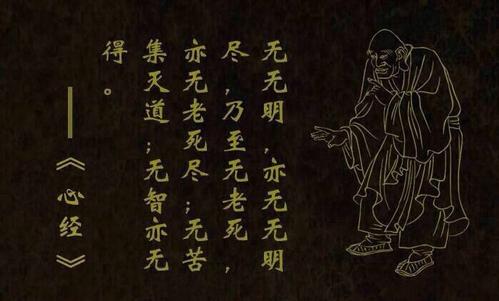 无无明，亦无无明
尽，乃至无老死，
亦无老死尽；无苦
集灭道；无智亦无
得。
——《心经》